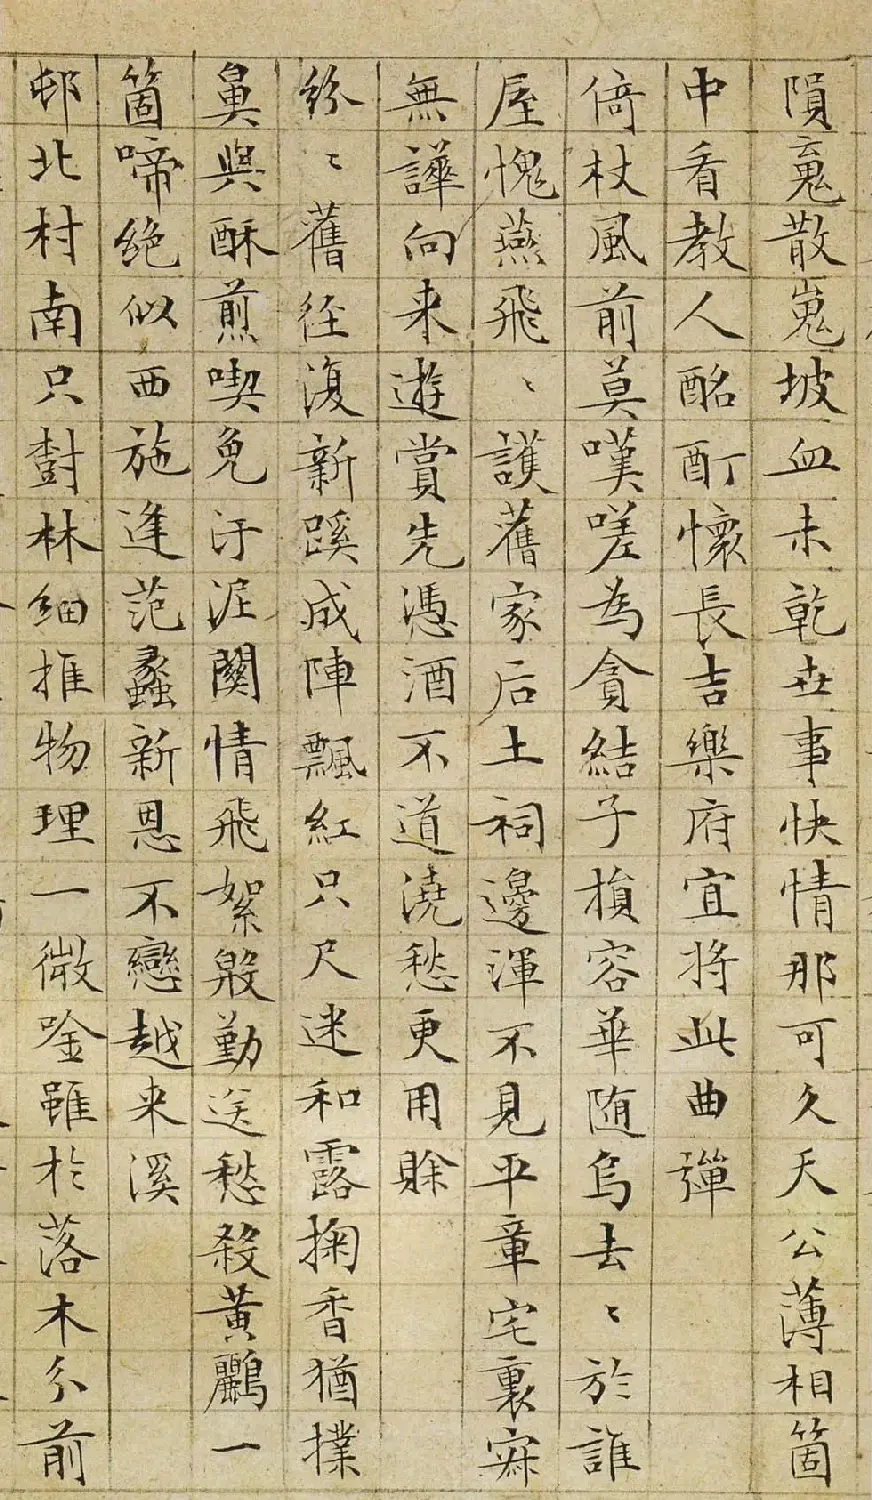 隕蒐散嵬坡血未乾世事快情那可久天公薄相箇
中看教人酩酊懷長吉樂府宜將此曲彈
倚杖風前莫嘆嗟為貪結子損容華随烏去〻於誰
屋愧燕飛〻護舊家后土祠邊渾不見平章宅裏寂
無譁向来遊賞先憑酒不道澆愁更用賒
紛〻舊径復新蹊成陣飄紅只尺迷和露掬香猶撲
鼻與酥煎喫免汙泥關情飛絮殷勤送愁殺黄鸝一
箇啼絶似西施逢范蠡新恩不戀越来溪
邨北村南只樹林細推物理一微唫雖於落木分前